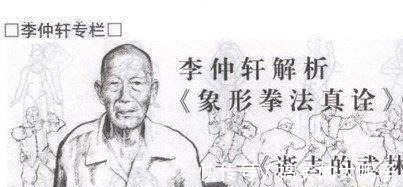 □李仲轩专栏□
李仲轩解析
《象形拳法真诠》
《逝去的武林